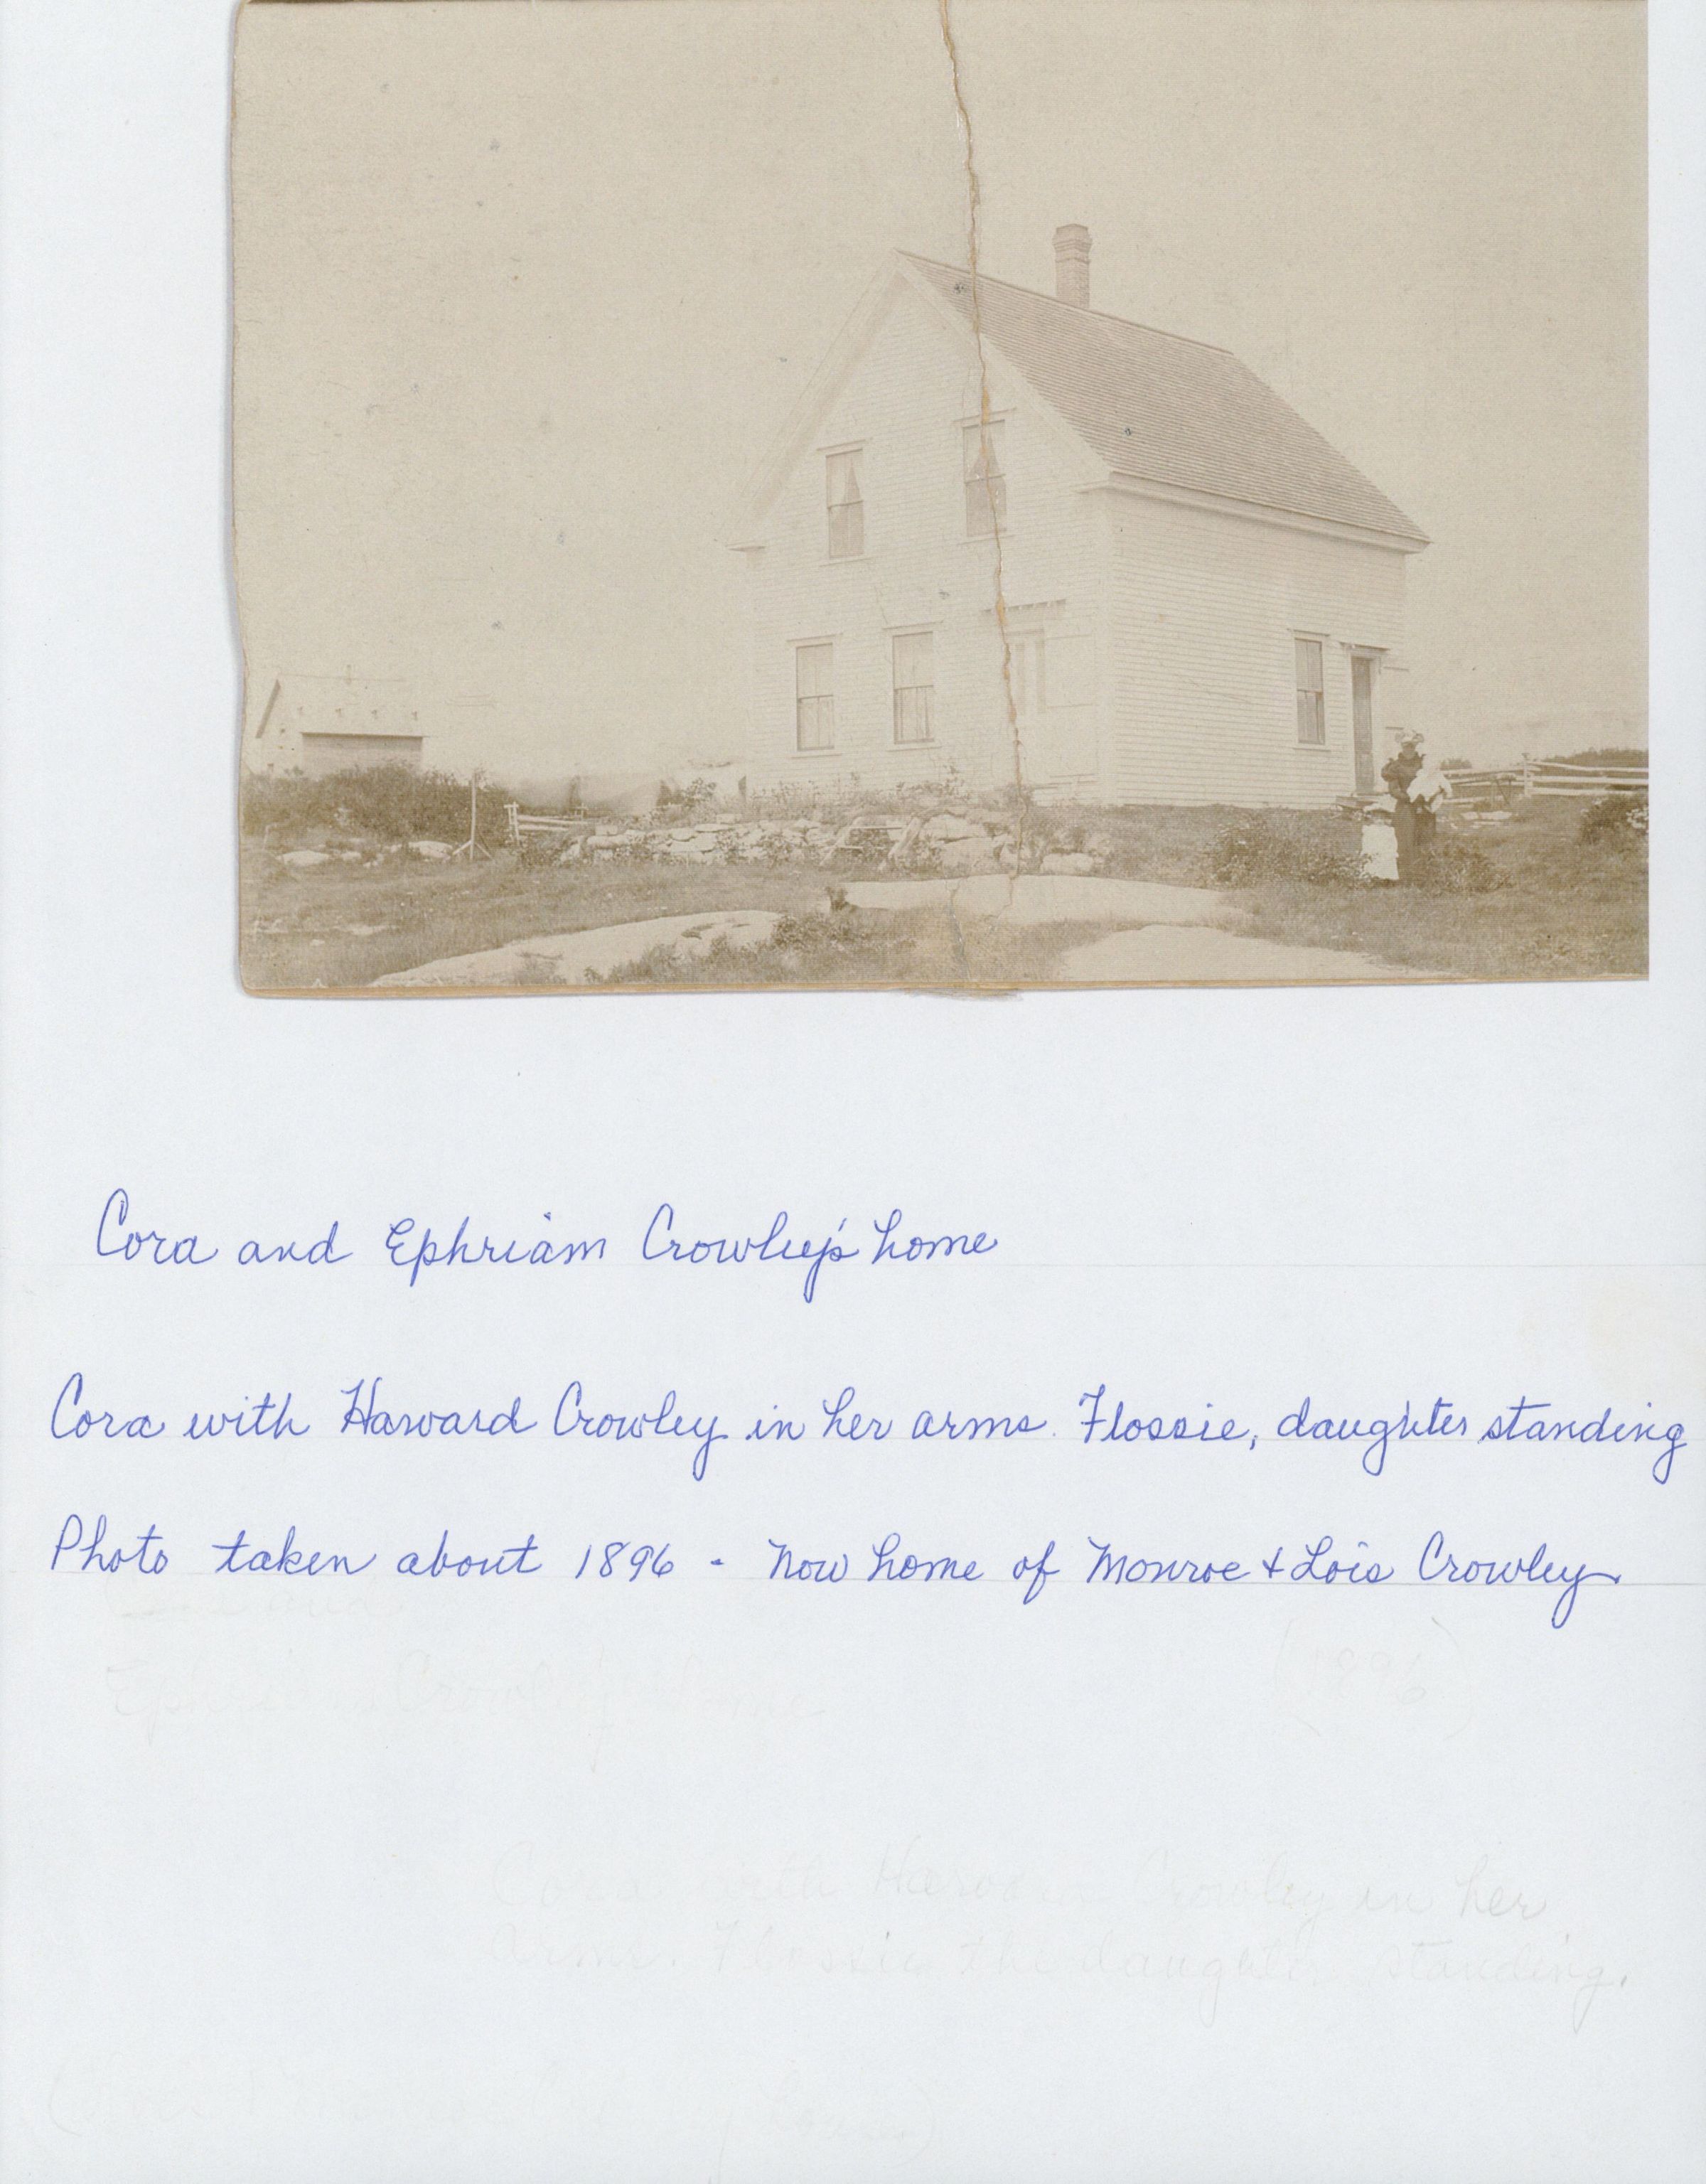 Cora and Ephriam Crowley's home
Cora with Harvard Crowley in her arms. Flossie, daughter standing
Photo taken about 1896 - Now home of Monroe + Lois Crowley
Ephriam Crowley's home (1896)
Cora with Crowley in her
arms. Flossie the daughter standing.